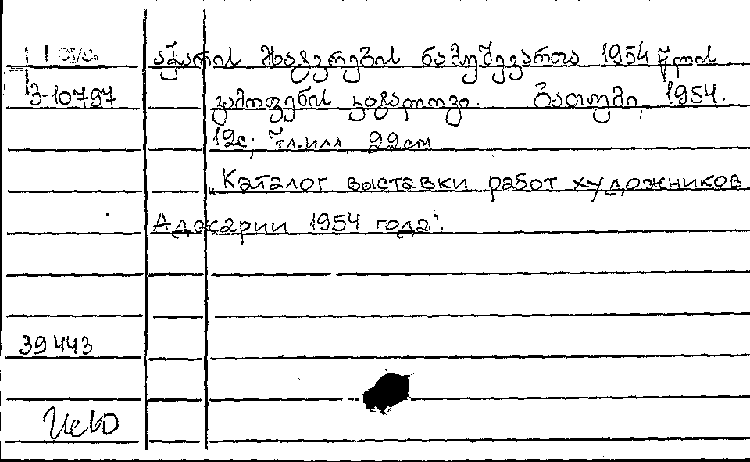 აჭარის მხატვრების ნამუშევართა 1954 წლის
3-10797 გამოფენის კატალოგი. ბათუმი, 1954.
12с; 7л.илл. 22см
„Каталог выставки работ художников
Аджарии 1954 года".
39443